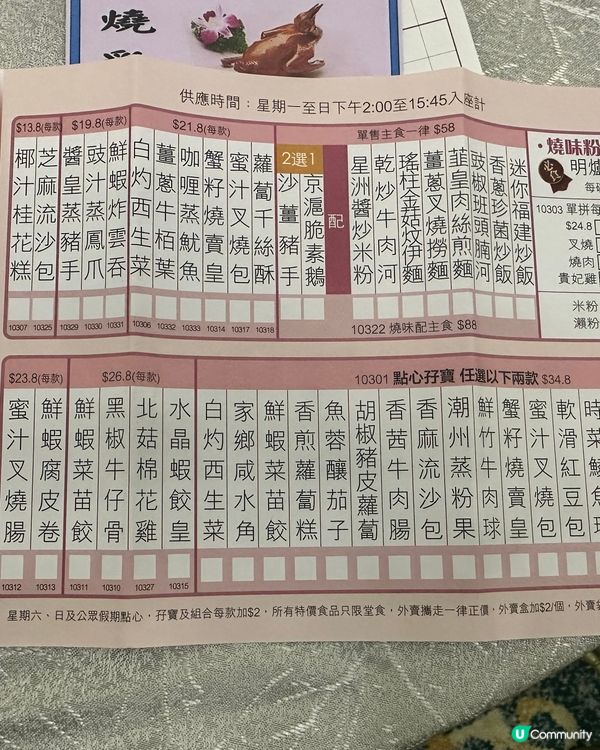 燒
供應時間：星期一至日下午2:00至15:45入座計
$13.8(每款)
椰汁桂花糕
芝麻流沙包
10307
10325
$19.8(每款)
醬皇蒸豬手
豉汁蒸鳳爪
鮮蝦炸雲吞
10329
10330
10331
$21.8(每款)
白灼西生菜
薑蔥牛栢葉
咖喱蒸魷魚
蟹籽燒賣皇
蜜汁叉燒包
蘿蔔千絲酥
10306
10332
10333
10314
10317
10318
單售主食一律 $58
2選1
沙薑豬手
京滬脆素鵝
配
星洲醬炒米粉
乾炒牛肉河
瑤柱金菇炆伊麵
薑蔥叉燒撈麵
韮皇肉絲煎麵
豉椒班頭腩河
香蔥珍菌炒飯
迷你福建炒飯
10322 燒味配主食 $88
·燒味粉
明爐
每碟
10303 單拼每
$24.8
叉燒
燒肉
貴妃雞
米粉
瀨粉
$23.8(每款)
蜜汁叉燒腸
鮮蝦腐皮卷
10312
10313
$26.8(每款)
鮮蝦菜苗餃
黑椒牛仔骨
北菇棉花雞
水晶蝦餃皇
10311
10310
10327
10315
10301 點心孖寶 任選以下兩款 $34.8
白灼西生菜
家鄉咸水角
鮮蝦菜苗餃
香煎蘿蔔糕
魚蓉釀茄子
胡椒豬皮蘿蔔
香茜牛肉腸
香麻流沙包
潮州蒸粉果
鮮竹牛肉球
蟹籽燒賣皇
蜜汁叉燒包
軟滑紅豆包
時菜鯪魚
星期六、日及公眾假期點心，孖寶及組合每款加$2，所有特價食品只限堂食，外賣攜走一律正價，外賣盒加$2/個，外賣袋
U Community